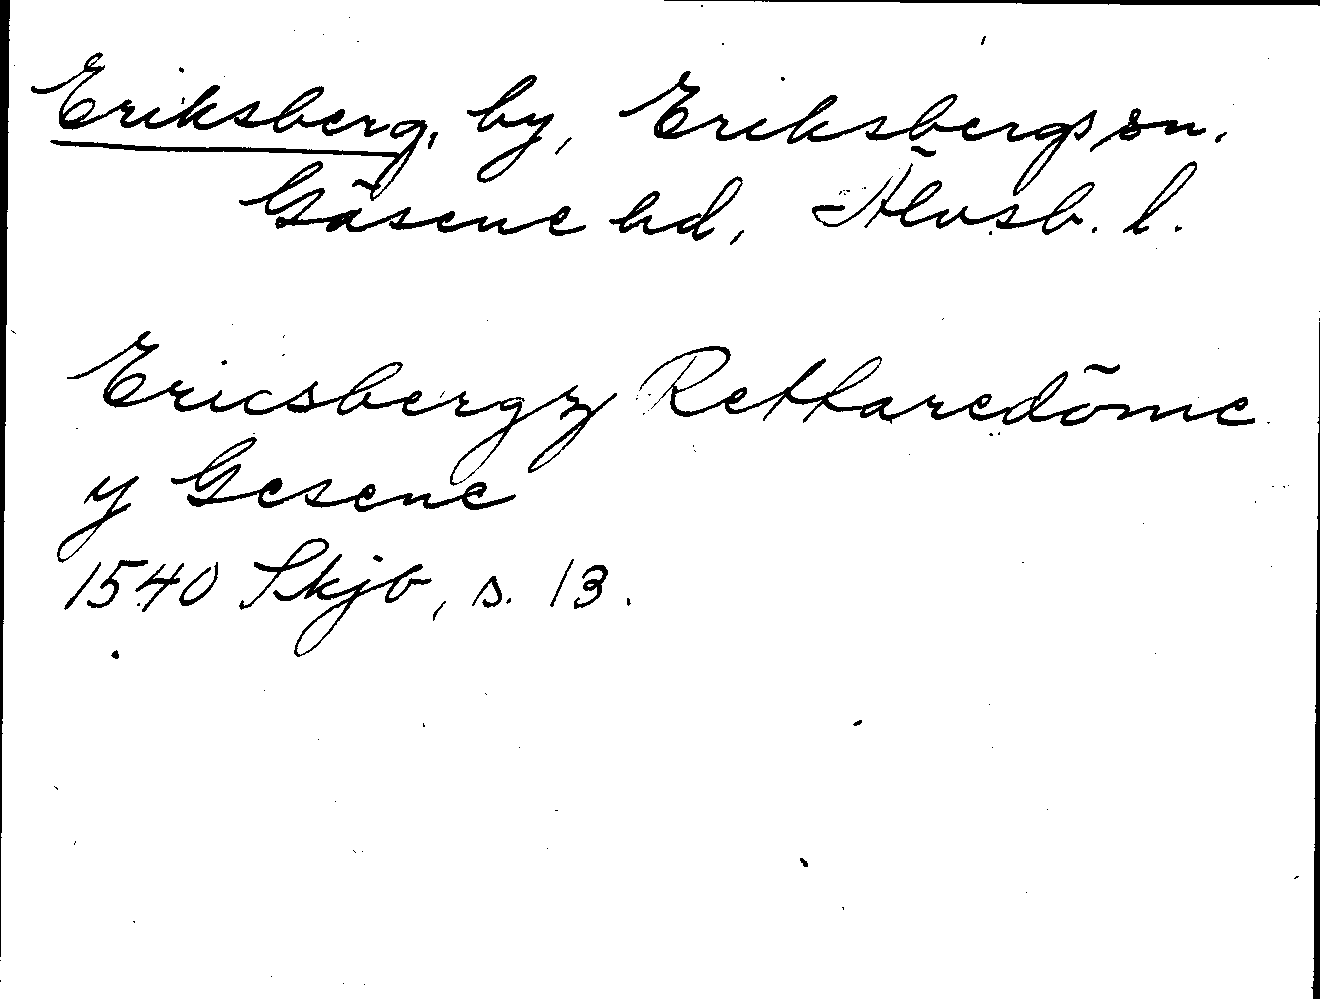 Eriksberg, by, Eriksbergs sn.
Gäsene hd, Älvsb. l.
Ericsbergz Rettaredöme
y Gesene
1540 Skjb, s. 13.